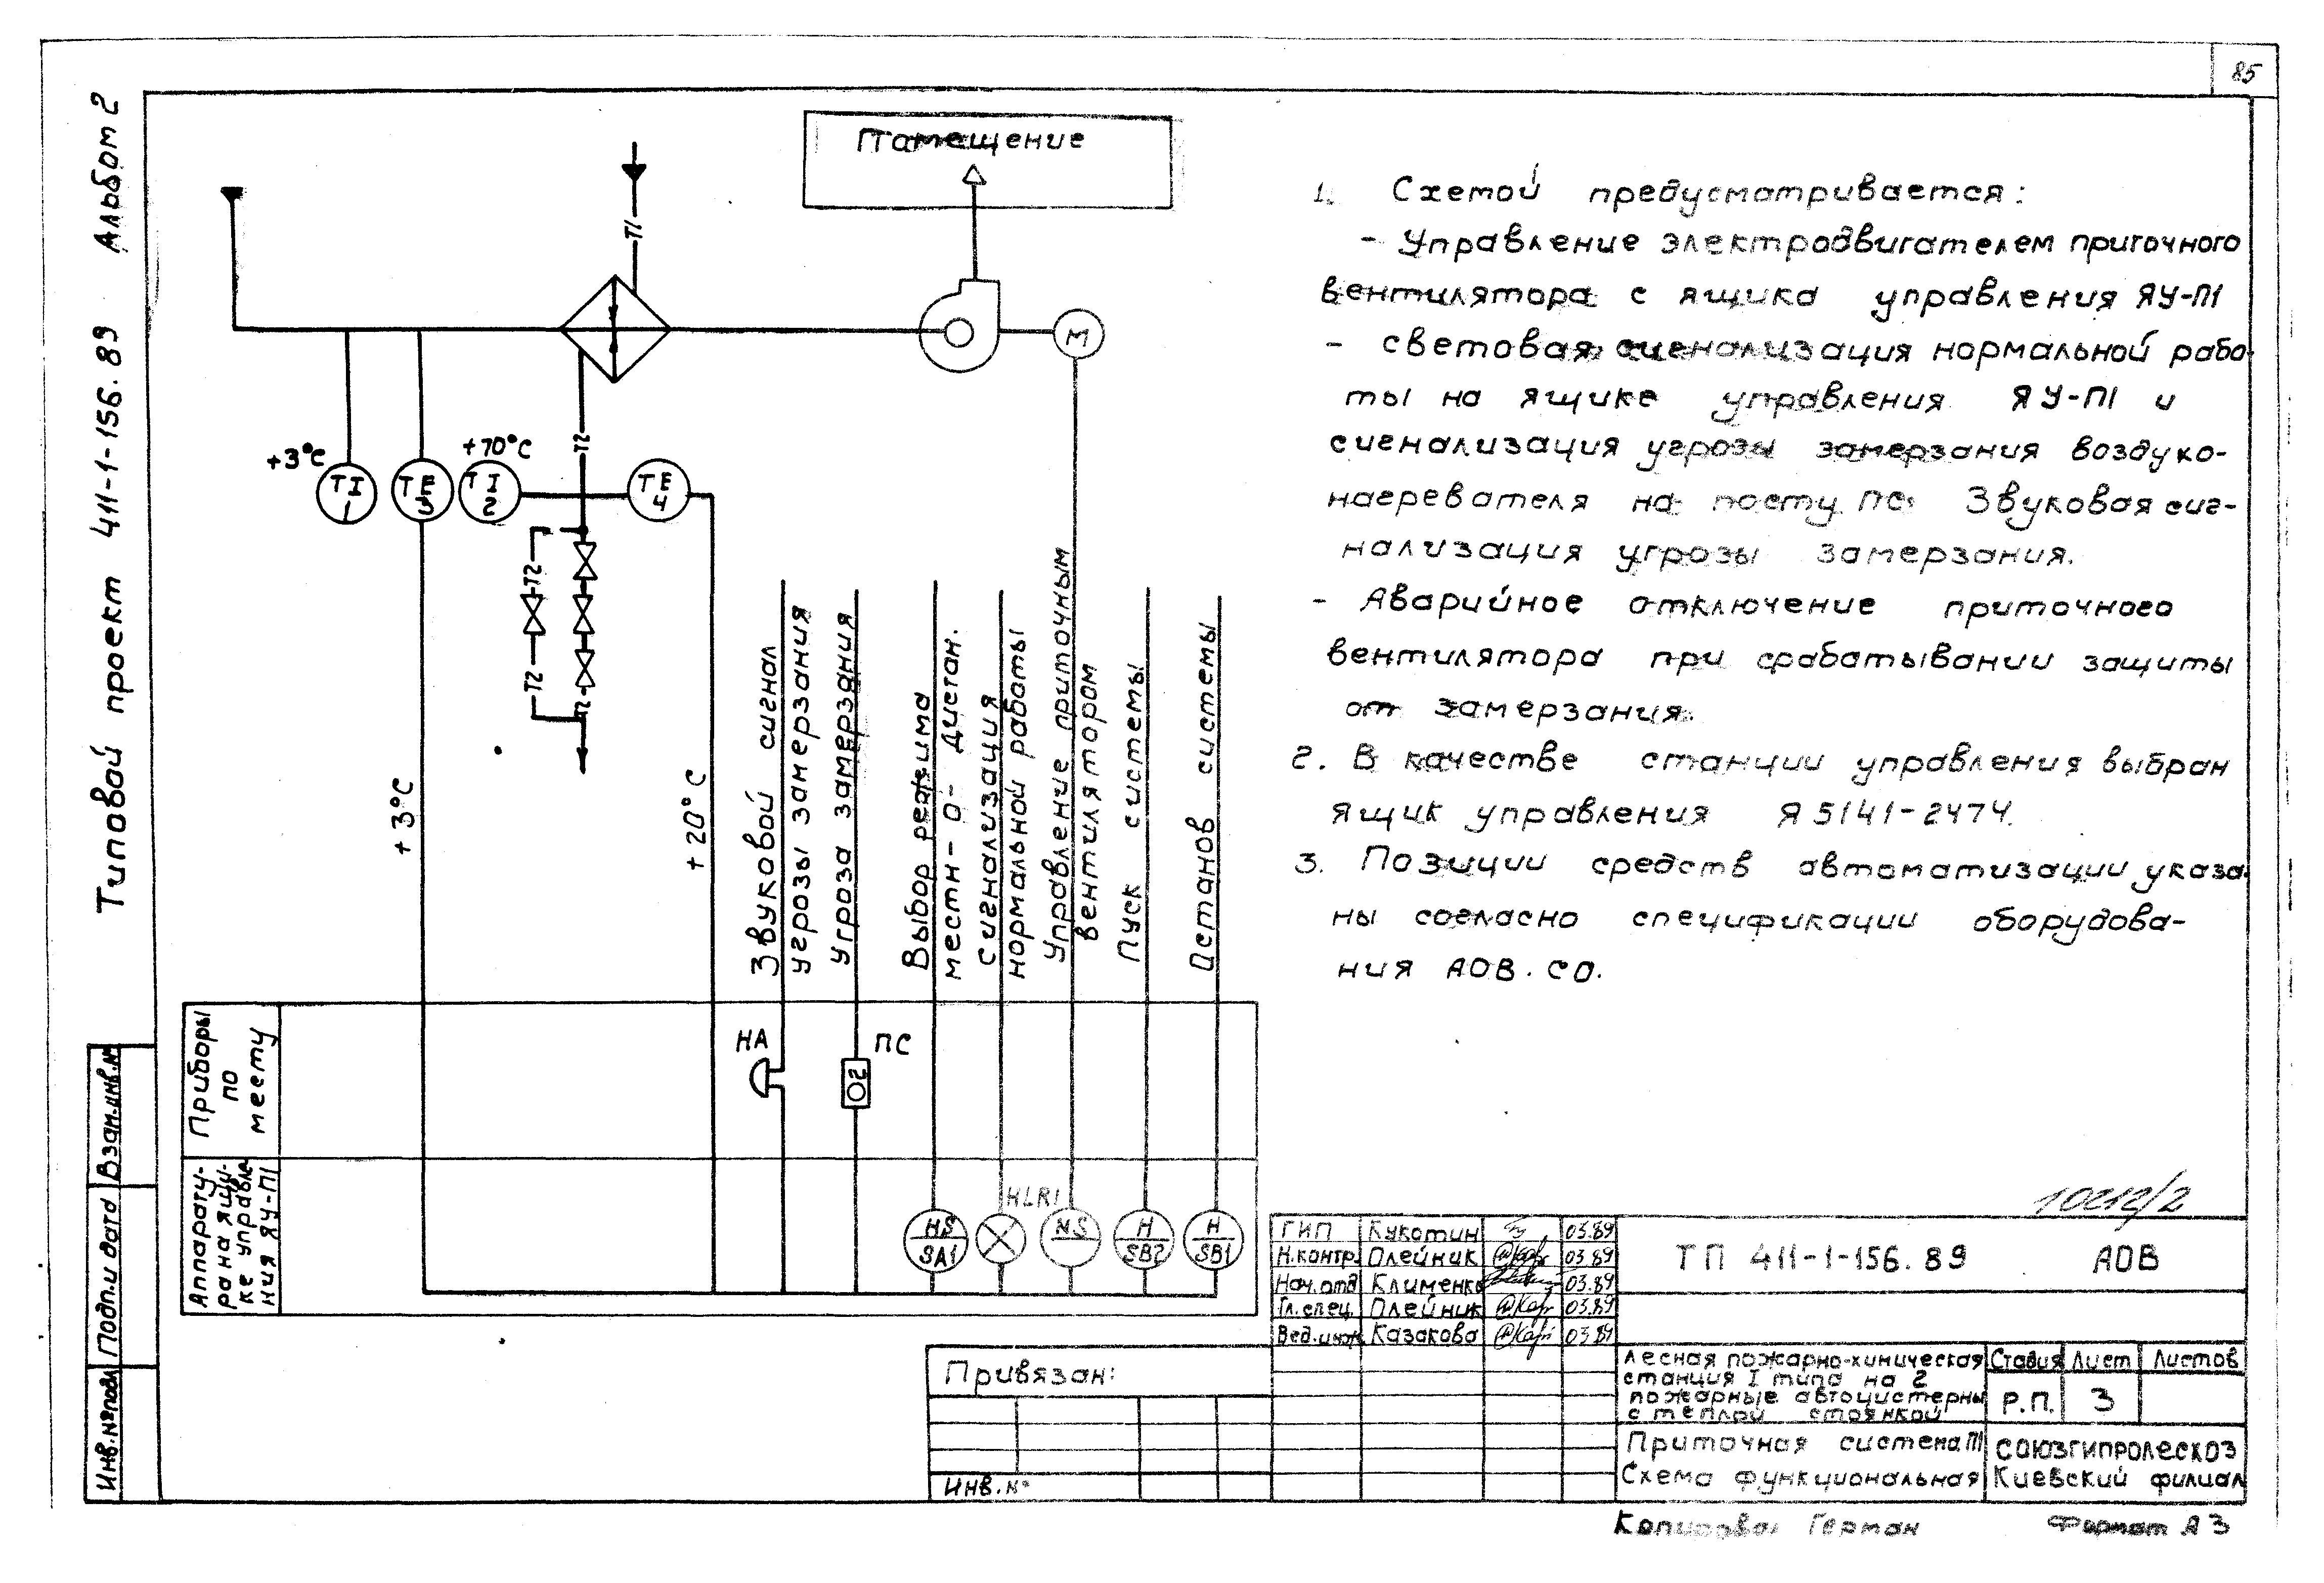 85
Типовой проект 411-1-156.89 Альбом 2
Помещение
T1
+3°C
+70°C
TI 1
TE 3
TI 2
TE 4
T2
T2
T2
T2
+3°C
+20°C
Звуковой сигнал
угрозы замерзания
Угроза замерзания
Выбор режима
местн-0- дистан.
сигнализация
нормальной работы
Управление приточным
вентилятором
Пуск системы
Останов системы
M
Приборы
по
месту
НА
ПС
Аппарату-
ра на ящи-
ке управле-
ния ЯУ-П1
HLR1
HS
SA1
NS
H
SB2
H
SB1
1. Схемой предусматривается:
- Управление электродвигателем приточного
вентилятора с ящика управления ЯУ-П1
- световая сигнализация нормальной рабо-
ты на ящике управления ЯУ-П1 и
сигнализация угрозы замерзания воздухо-
нагревателя на посту ПС. Звуковая сиг-
нализация угрозы замерзания.
- Аварийное отключение приточного
вентилятора при срабатывании защиты
от замерзания.
2. В качестве станции управления выбран
ящик управления Я5141-2474.
3. Позиции средств автоматизации указа-
ны согласно спецификации оборудова-
ния АОВ.СО.
10212/2
ГИП Кукотин 03.89
Н.контр. Олейник 03.89
Нач.отд Клименко 03.89
Гл.спец. Олейник 03.89
Вед.инж. Казакова 03.89
ТП 411-1-156.89 АОВ
Лесная пожарно-химическая
станция I типа на 2
пожарные автоцистерны
с теплой стоянкой
Стадия Лист Листов
Р.П. 3
Приточная система П1
Схема функциональная
СОЮЗГИПРОЛЕСХОЗ
Киевский филиал
Привязан:
Инв.№
Взам.инв.№
Подп.и дата
Инв.№подл
Копировал Герман Формат А3